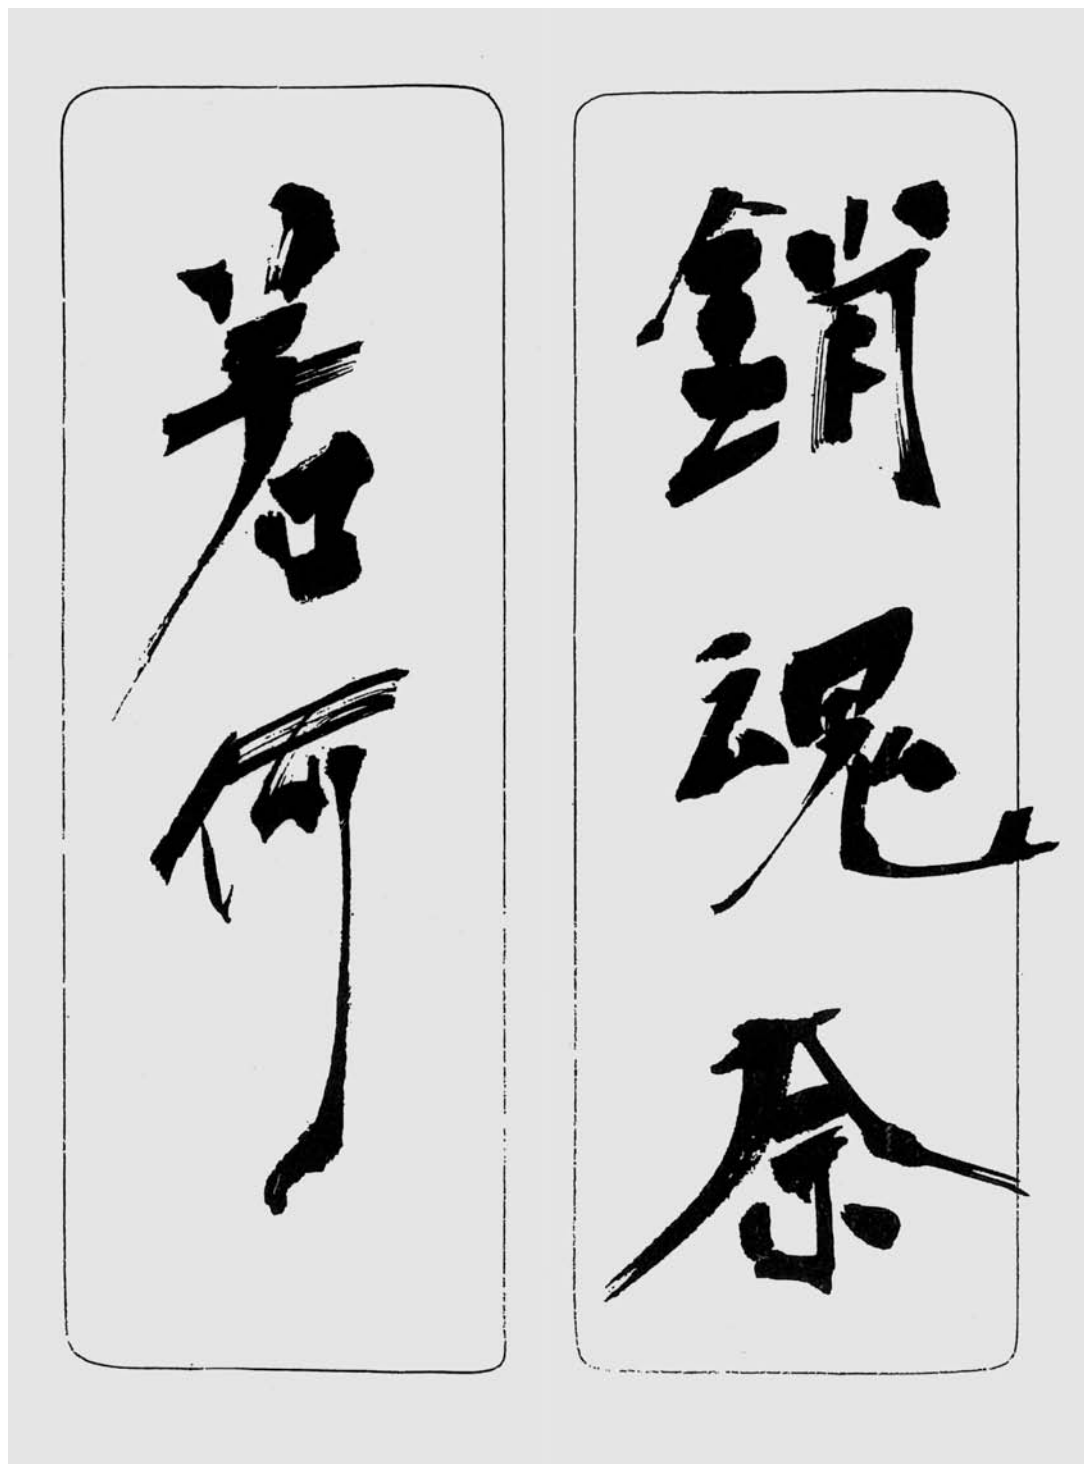 銷魂奈
若何